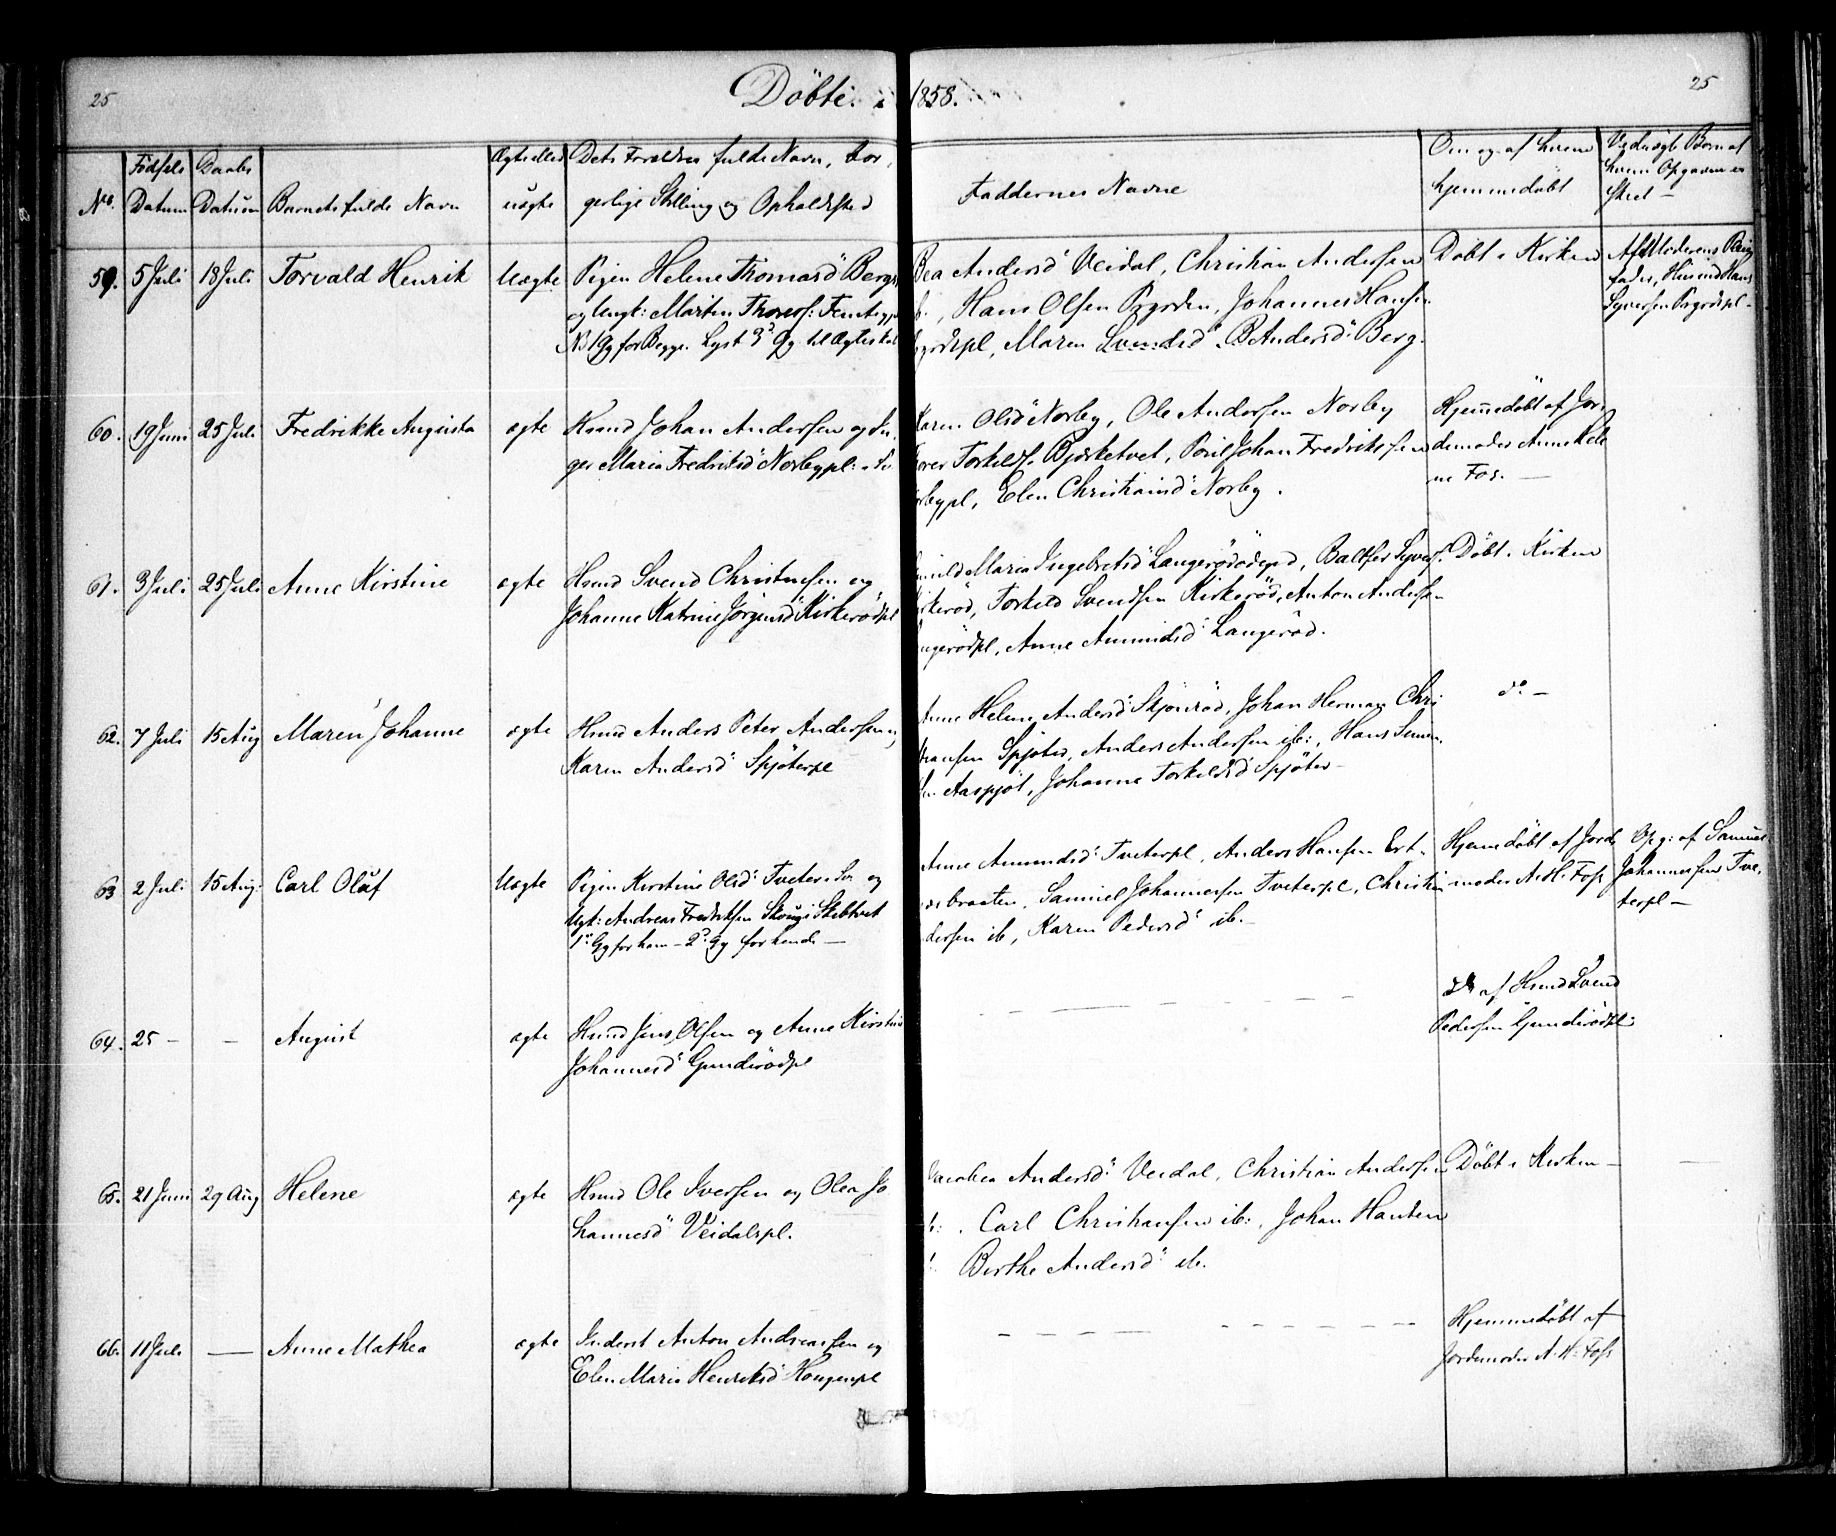 25 Döbte i 1858. 25
No. Fødsels Datum Daabs Datum Barnets fulde Navn Ægte eller uægte Dets Forældres fulde Navn, bor-
gerlige Stilling og Opholdsted Faddernes Navne Om og af hvem hjemmedøbt Ved uægte Børn af hvem Opgaven er skeet -
59. 5 Juli 18 Juli Torvald Henrik Uægte Pigen Helene Thomasd: Berg
og Ungk: Martin
No 1 Gg for Begge. Lyst 3d Gg til Ægteskab
Andersd: Veidal, Christian Andersen
Hans Olsen Brgorden, Johannes Hansen
Maren Svendsd: B. Andersd: Berg.
Døbt i Kirken
Af Moderens
fader, Husmd Hans
Syversen
60. 19 Juni 25 Juli Fredrikke Augusta ægte Hsmd Johan Andersen og In-
ger Maria Fredriksd: Norbypl:
Karen Olsd: Norby, Ole Andersen Norby
Torkelss: Bjørketvet, Poul Johan Fredriksen
pl, Elen Christiansd: Norby.
Hjemmedöbt af Jor-
demoder Anne Hele
ne Fos. -
61. 3 Juli 25 Juli Anne Kirstine ægte Hsmd Svend Christensen og
Johanne Katrine Jörgensd: Kirkerödpl
Maria Ingebretsd: Langeröd, Baltser Syvers:
Kirkeröd, Torkild Svendsen Kirkeröd, Anton Andersen
Langerödpl, Anne Amundsd: Langeröd.
Döbt i Kirken
62. 7 Juli 15 Aug Maren Johanne ægte Hsmd Anders Peter Andersen og
Karen Andersd: Spjöterpl
Anne Helene Andersd: Skjönröd, Johan Herman Chri
stiansen Spjöter, Anders Andersen ib:, Hans Simen-
sen Aaspjöt, Johanne Torkildsd: Spjöter -
do -
63 2 Juli 15 Aug: Carl Oluf Uægte Pigen Kirstine Olsd: Tveter og
Ugk: Andreas Fredriksen Skougi Skibtvet
1ste Gg for ham - 2d Gg for hende -
Anne Amundsd: Tveterpl, Anders Hansen Ert-
braaten, Samuel Johannessen Tveterpl, Christian
dersen ib, Karen Pedersd: ib. -
Hjemmedöbt af Jorde
moder A. H. Foss
Opg: af Samuel
Johannessen Tve-
terpl -
64. 25 - - August ægte Hsmd Jens Olsen og Anne Kirstine
Johannesd: Gunderödpl
do af Hsmd Svend
Pedersen Gunderödpl:
65. 21 Juni 29 Aug Helene ægte Hsmd Ole Iversen og Olea Jo
hannesd: Veidalspl.
Andersd: Veidal, Christian Andersen
Carl Christiansen ib:, Johan Hansen
Berthe Andersd: ib.
Döbt i Kirken -
66. 11 Juli - Anne Mathea ægte Inderst Anton Andreassen og
Elen Maria Henriksd: Haugenpl
Hjemmedöbt af
Jordemoder A. H. Foss